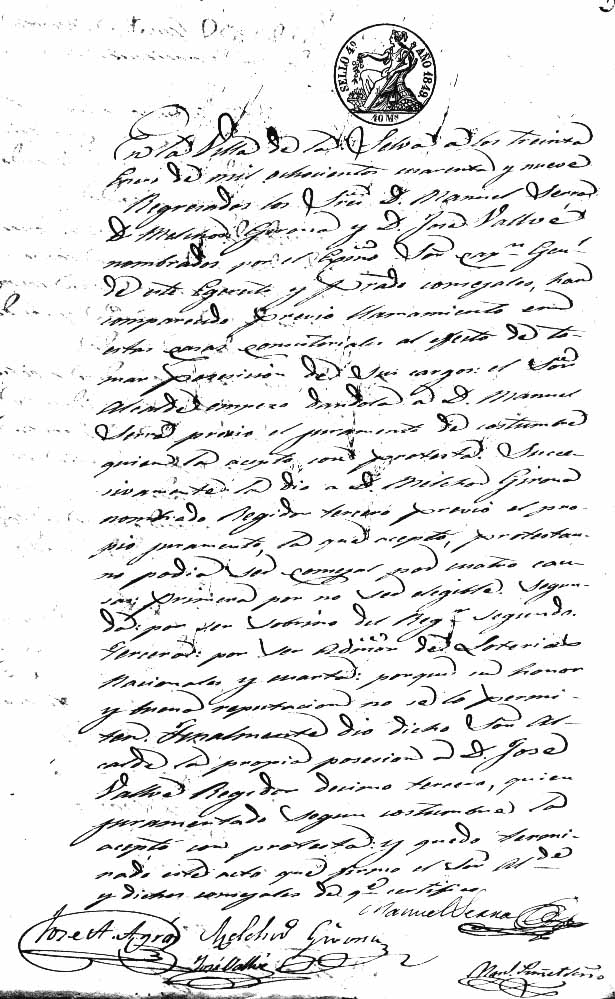 SELLO 4º AÑO 1849
40 Ms
En la Villa de la Selva a los treinta
Enero de mil ochocientos cuarenta y nueve
los Sres D. Manuel Serra
D. Melchor Girona y D. José Vallvé
nombrados por el Exmo Sor Capn Genl
de este Egercito y Prado consejales, han
comparecido previo llamamiento en
estas casas consistoriales al efecto de to-
mar posesision de sus cargos: el Sor
Alcalde empezo dandola a D. Manuel
Serra previo el juramento de costumbre
quien la acepto con protesta. Succe-
sivamente la dio a D. Melchor Girona
nombrado Regidor tercero previo el pro-
pio juramento, la que acepto, protestan-
no podia ser consejal por cuatro cau-
sas: primera por no ser elegible. Segun-
da: por ser sobrino del Regr segundo.
Tercera: por ser Admon de Loterias
Nacionales y cuarta: porque su honor
y buena reputacion no se lo permi-
ten. Finalmente dio dicho Sor Al-
calde la propia posesion a D. José
Vallvé Regidor decimo tercero, quien
juramentado segun costumbre la
acepto con protesta: y quedo termi-
nado este acto que firmo el Sor Alde
y dichos consejales de qe certifico
Manuel Serra
José A. Melchor Girona
José Vallvé